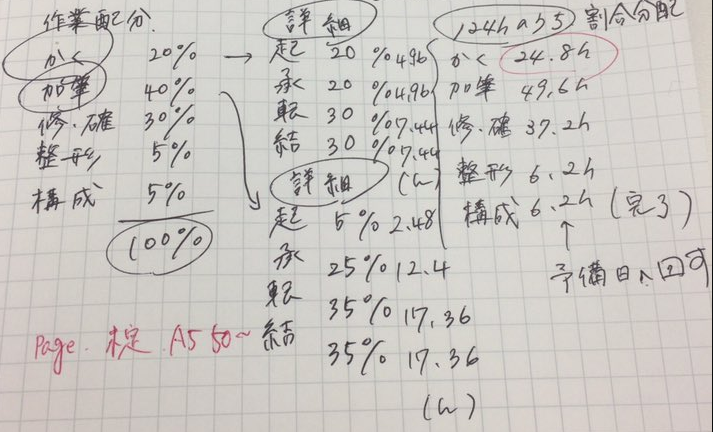 作業配分
かく 20% →
加筆 40%
修・確 30%
整形 5%
構成 5%
100%
Page. 未定 A5 50~
詳細
起 20% 4.96
承 20% 4.96
転 30% 7.44
結 30% 7.44
(h)
詳細
起 5% 2.48
承 25% 12.4
転 35% 17.36
結 35% 17.36
(h)
124hのうち 割合分配
かく 24.8h
加筆 49.6h
修・確 37.2h
整形 6.2h
構成 6.2h (完了)
↑
予備日へ回す